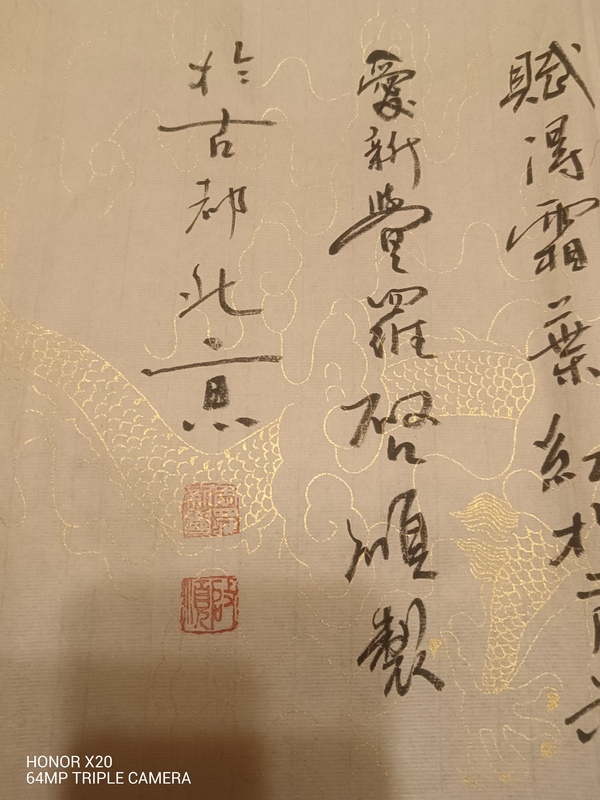 賦得霜葉紅於二月花
愛新覺羅啓順製
於古都北京
啟順
HONOR X20
64MP TRIPLE CAMERA